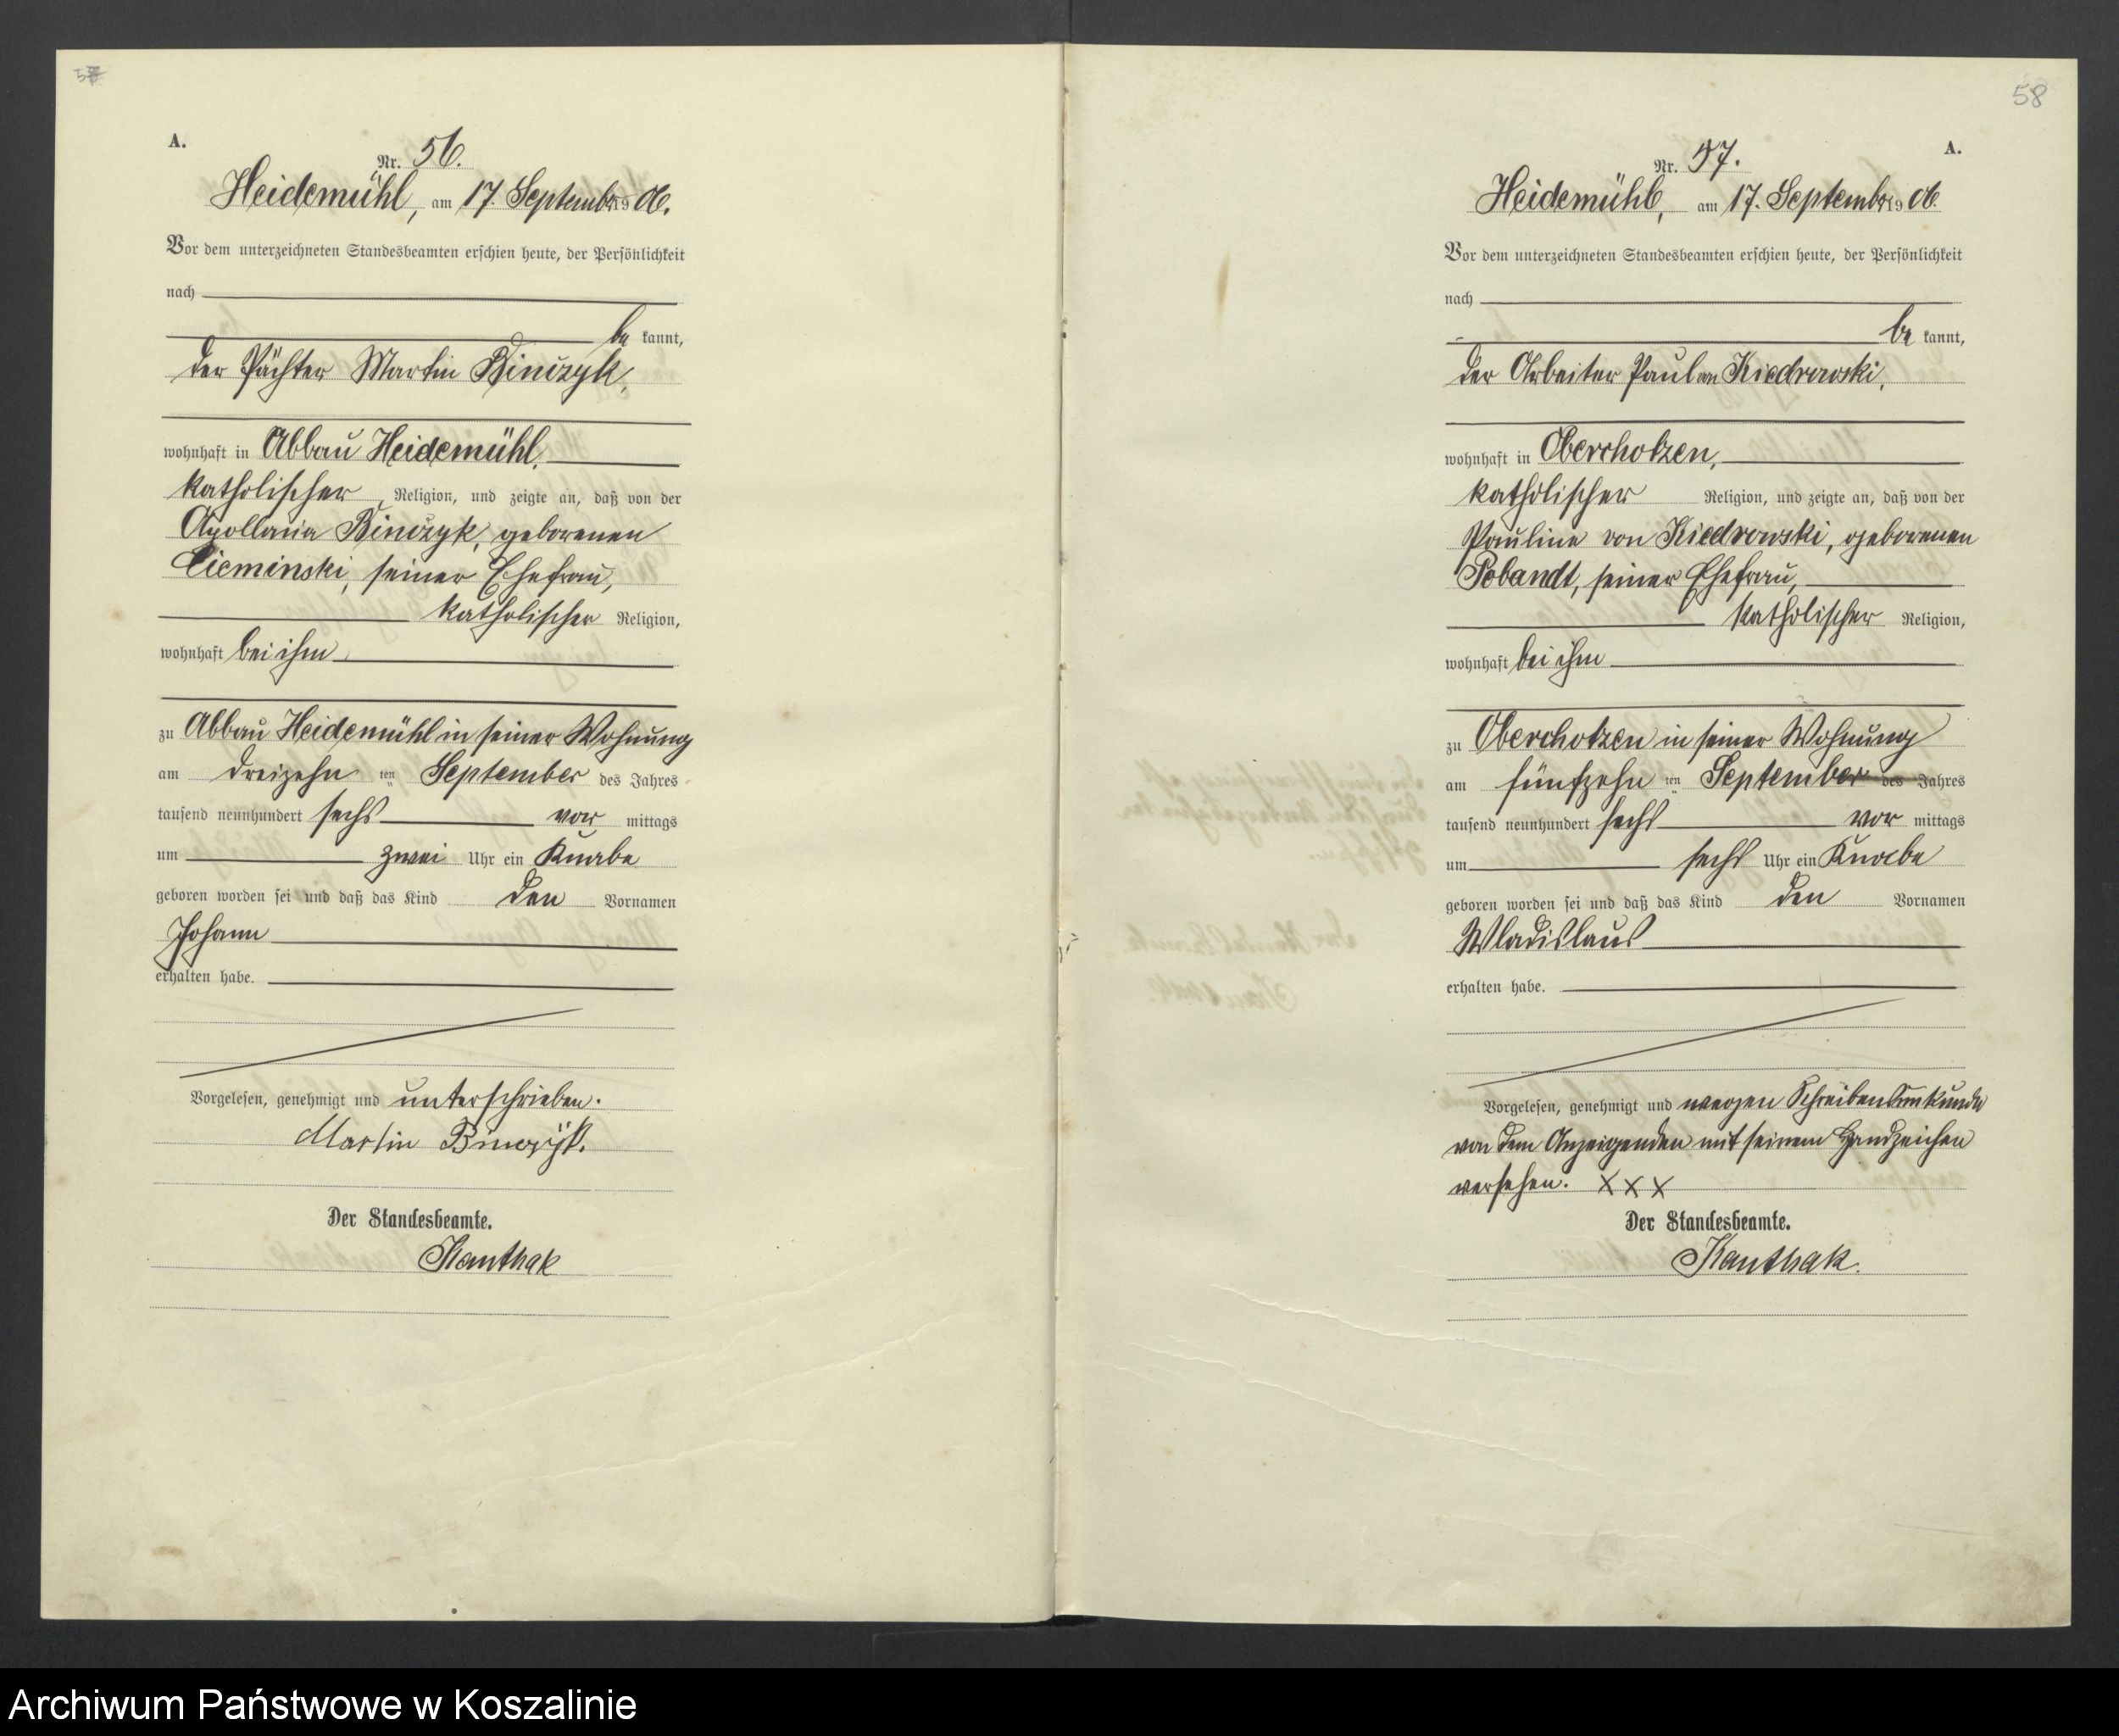 A.
Nr. 56.
Heidemühl, am 17. Septembr 1906.
Vor dem unterzeichneten Standesbeamten erschien heute, der Persönlichkeit
nach
be kannt,
der Pächter Martin Binczyk,
wohnhaft in Abbau Heidemühl,
katholischer Religion, und zeigte an, daß von der
Apollonia Binczyk, geborenen
Cieminski, seiner Ehefrau,
katholischer Religion,
wohnhaft bei ihm
zu Abbau Heidemühl in seiner Wohnung
am dreizehn ten September des Jahres
tausend neunhundert sechs vor mittags
um zwei Uhr ein Knabe
geboren worden sei und daß das Kind den Vornamen
Johann
erhalten habe.
Vorgelesen, genehmigt und unterschrieben.
Martin Binczyk.
Der Standesbeamte.
Kanthak
58
A.
Nr. 57.
Heidemühl, am 17. Septembr 1906.
Vor dem unterzeichneten Standesbeamten erschien heute, der Persönlichkeit
nach
be kannt,
der Arbeiter Paul von Kiedrowski,
wohnhaft in Oberchotzen,
katholischer Religion, und zeigte an, daß von der
Pauline von Kiedrowski, geborenen
Pobandt, seiner Ehefrau,
katholischer Religion,
wohnhaft bei ihm
zu Oberchotzen in seiner Wohnung
am fünfzehn ten September des Jahres
tausend neunhundert sechs vor mittags
um sechs Uhr ein Knabe
geboren worden sei und daß das Kind den Vornamen
Wladislaus
erhalten habe.
Vorgelesen, genehmigt und wegen Schreibensunkunde
von dem Anzeigenden mit seinem Handzeichen
versehen. XXX
Der Standesbeamte.
Kanthak.
Archiwum Państwowe w Koszalinie